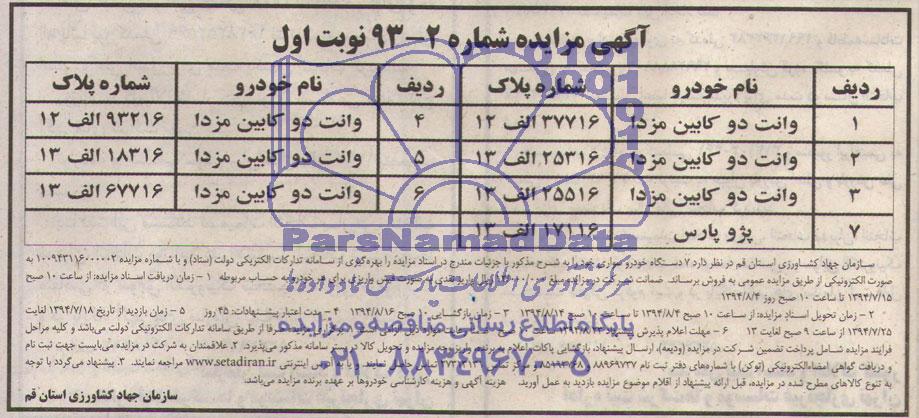 آگهی مزایده شماره ۲-۹۳ نوبت اول
ردیف نام خودرو شماره پلاک ردیف نام خودرو شماره پلاک
۱ وانت دو کابین مزدا ۳۷۷۱۶ الف ۱۲ ۴ وانت دو کابین مزدا ۹۳۲۱۶ الف ۱۲
۲ وانت دو کابین مزدا ۲۵۳۱۶ الف ۱۳ ۵ وانت دو کابین مزدا ۱۸۳۱۶ الف ۱۳
۳ وانت دو کابین مزدا ۲۵۵۱۶ الف ۱۳ ۶ وانت دو کابین مزدا ۶۷۷۱۶ الف ۱۳
۷ پژو پارس ۱۷۱۱۶ الف ۱۳
ParsNamadData
سازمان جهاد کشاورزی استان قم در نظر دارد ۷ دستگاه خودرو سواری خود را به شرح مذکور با جزئیات مندرج در اسناد مزایده را با بهره‌گیری از سامانه تدارکات الکترونیکی دولت (ستاد) و با شماره مزایده ۱۰۰۹۴۳۱۱۶۰۰۰۰۰۲ به
صورت الکترونیکی از طریق مزایده عمومی به فروش برساند. ضمانت شرکت در مزایده مبلغ ریال واریز نقدی به صورت فیش واریزی برای هر خودرو به حساب مربوطه ۱ - زمان دریافت اسناد مزایده: از ساعت ۱۰ صبح
۱۳۹۴/۷/۱۵ تا ساعت ۱۰ صبح روز ۱۳۹۴/۸/۴
۲ - زمان تحویل اسناد مزایده: از ساعت ۱۰ صبح ۱۳۹۴/۸/۴ تا ساعت ۱۰ صبح ۳ - زمان بازگشایی صبح ۱۳۹۴/۸/۱۶ ۴ - مدت اعتبار پیشنهادات: ۴۵ روز ۵ - زمان بازدید از تاریخ ۱۳۹۴/۷/۱۸ لغایت
۱۳۹۴/۷/۲۵ از ساعت ۹ صبح لغایت ۱۳ ۶ - مهلت اعلام پذیرش صرفا از طریق سامانه تدارکات الکترونیکی دولت می‌باشد و کلیه مراحل
فرایند مزایده شامل پرداخت تضمین شرکت در مزایده (ودیعه)، ارسال پیشنهاد، بازگشایی پاکات، اعلام به برنده، واریز وجه مزایده و تحویل کالا در بستر سامانه مذکور می‌پذیرد. ۲. علاقمندان به شرکت در مزایده می‌بایست جهت ثبت نام
و دریافت گواهی امضاء الکترونیکی (توکن) با شماره‌های دفتر ثبت نام ۸۸۹۶۹۷۳۷ تماس حاصل نمایند. یا به آدرس اینترنتی www.setadiran.ir مراجعه نمایند. ۳. پیشنهاد می‌گردد با توجه
به تنوع کالاهای مطرح شده در مزایده، قبل ارائه پیشنهاد از اقلام موضوع مزایده بازدید به عمل آورید. هزینه آگهی و هزینه کارشناسی خودروها بر عهده برنده مزایده می‌باشد.
سازمان جهاد کشاورزی استان قم
پایگاه اطلاع رسانی مناقصه و مزایده
۰۲۱-۸۸۳۴۹۶۷۰-۵